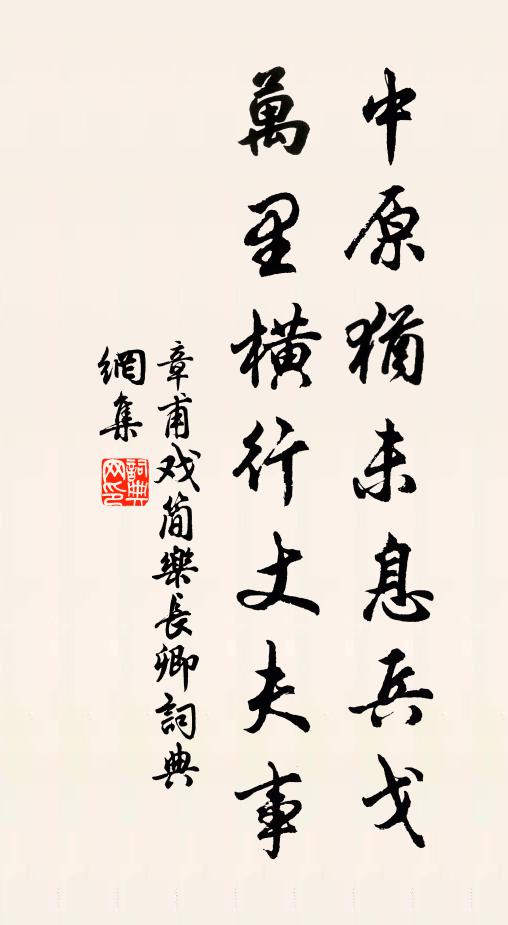 中原猶未息兵戈
萬里橫行丈夫事
章甫戏简樂長卿詞典
網集
詞典網印